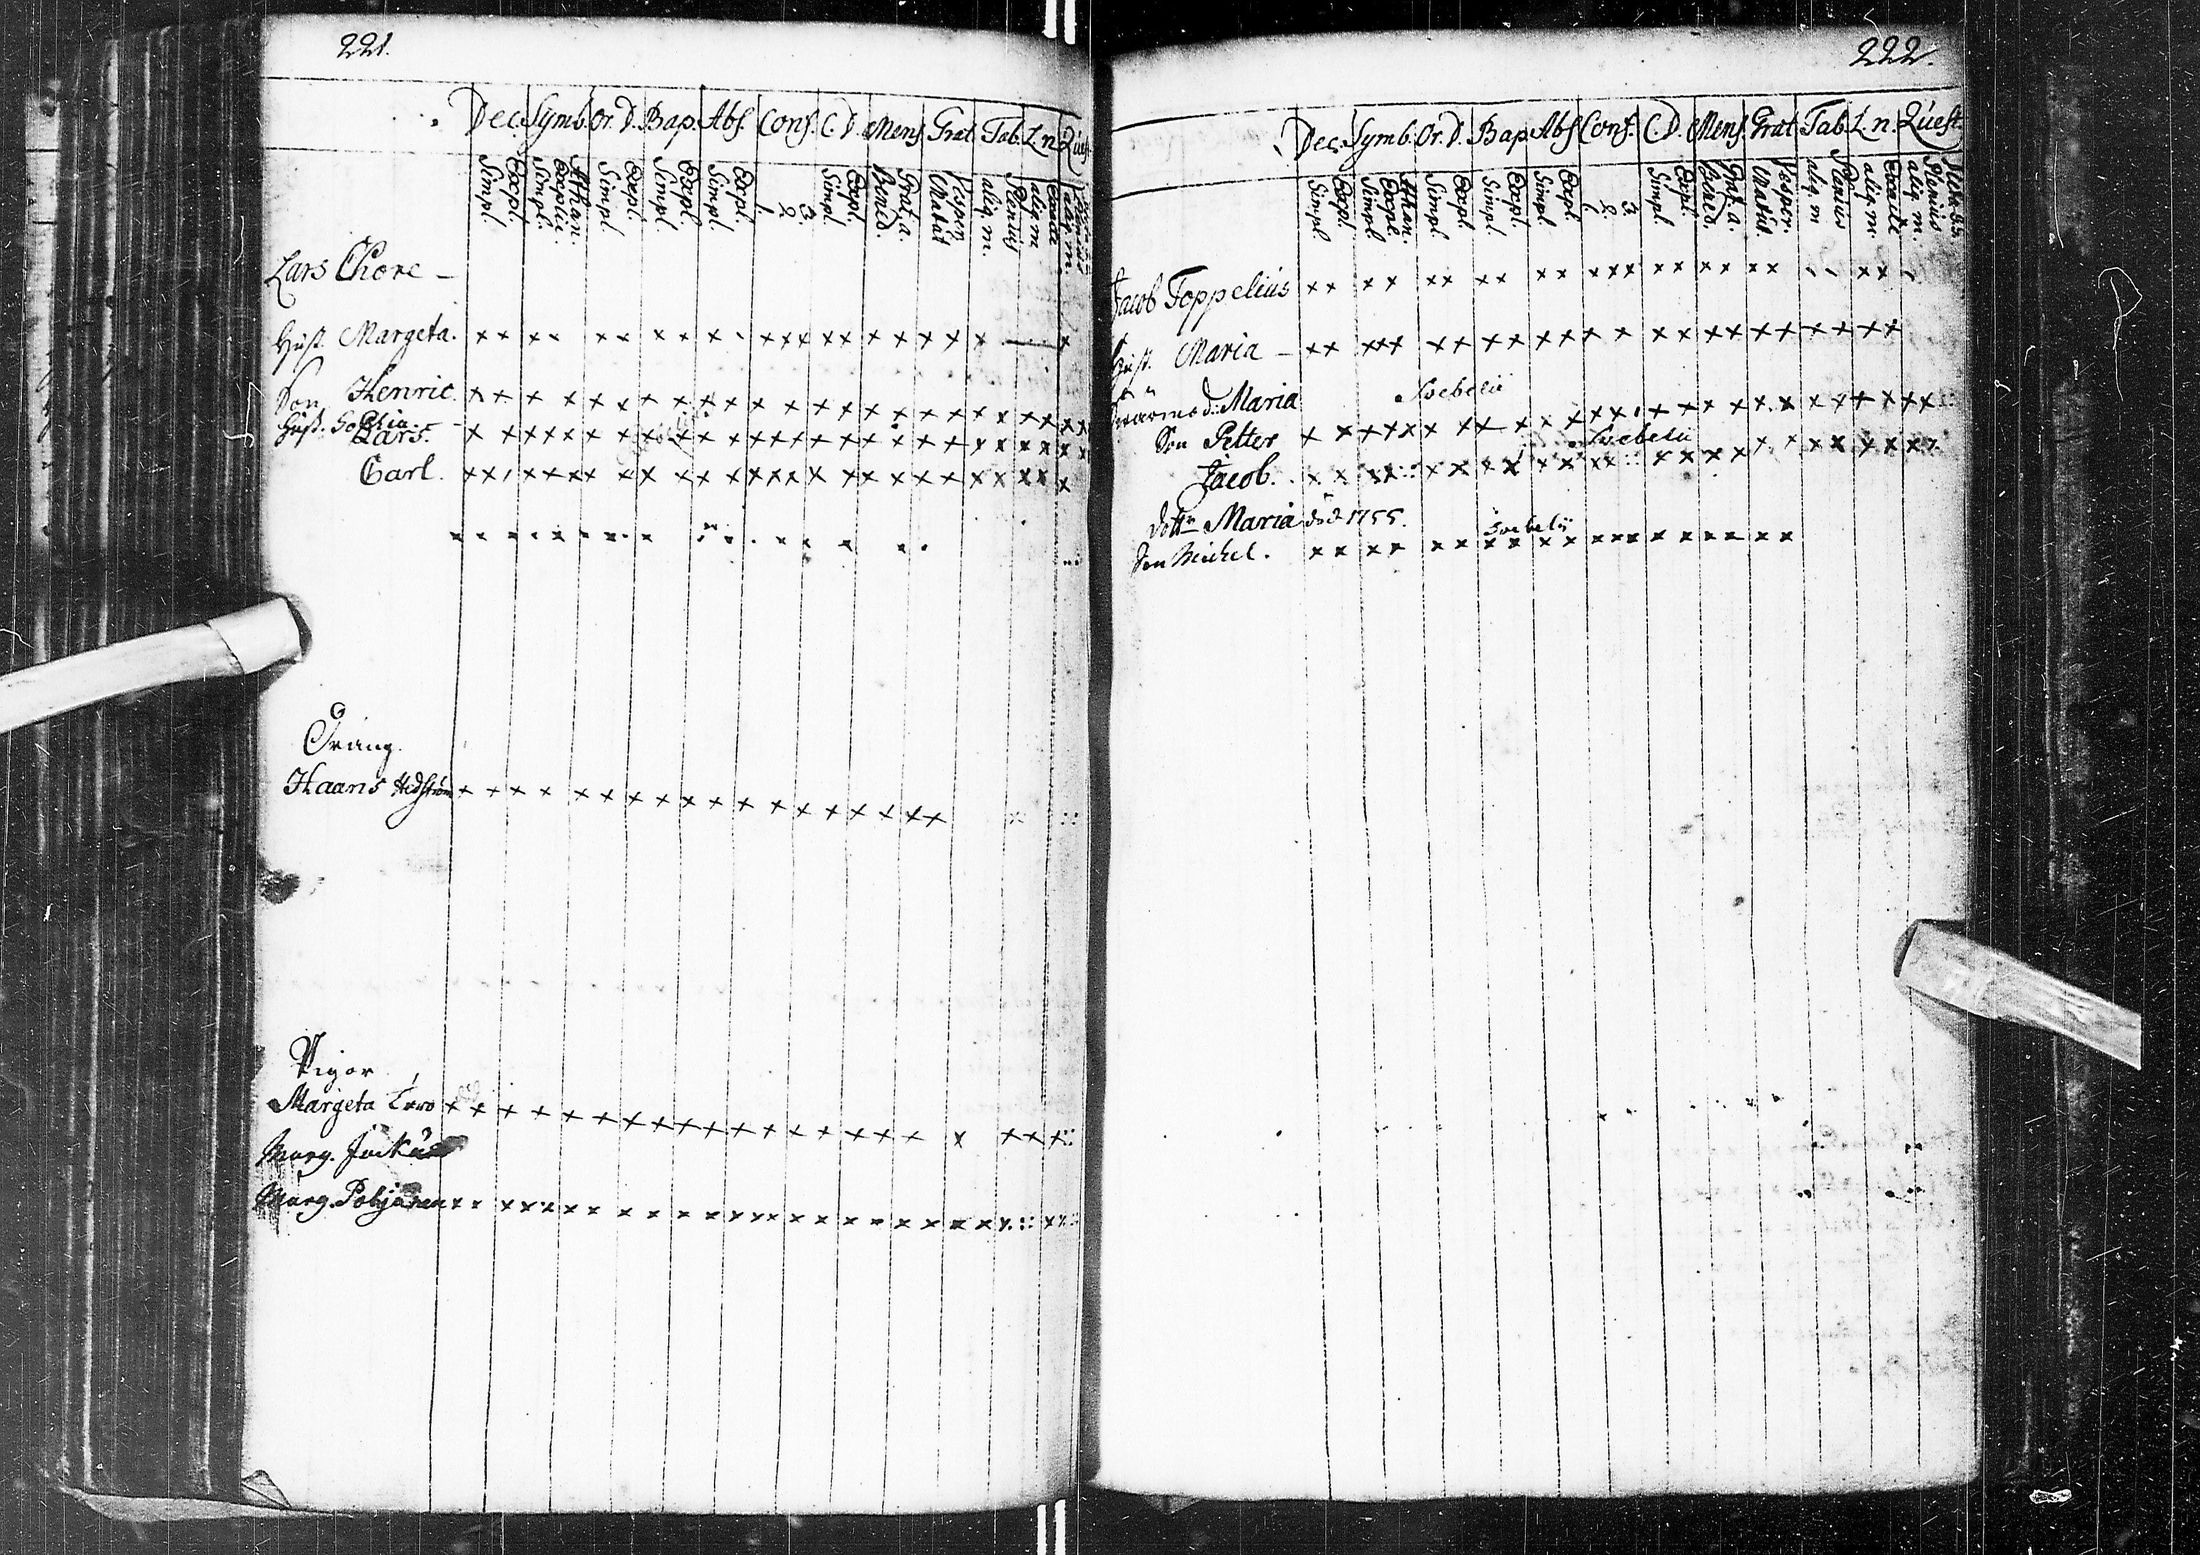 221.
Dec. Symb. Or. D. Bap. Abs. Conf. C. D. Mens. Grat. Tab. L. n. Quest.
Simpl. Expl. Simpl. Explic. Athan. Simpl. Expl. Simpl. Expl. Simpl. Expl. 1. 2. 3. Simpl. Expl. Bened. Grat. a. Matut. Vesper. aliq m. Plenius aliq m
Lars Chore –
Hust. Margeta.
Son Henric.
Hust. Sophia.
Lars.
Carl.
Dräng.
Haans Hedström
Pigor
Margeta
Marg.
Marg. Pohjanen
222.
Dec. Symb. Or. D. Bap. Abs. Conf. C. D. Mens. Grat. Tab. L. n. Quest.
Simpl. Expl. Simpl. Expl. Athan. Simpl. Expl. Simpl. Expl. Simpl. Expl. 1. 2. 3. Simpl. Expl. Bened. Grat. a. Matut. Vesper. aliq m Plenius aliq m. Exacte aliq m. Plenius
Jacob Toppelius
Hust. Maria –
Svärmod: Maria Svebelii
Son Petter Svebelii
Jacob.
dottr Maria död 1755. Svebelii
Son Michel.